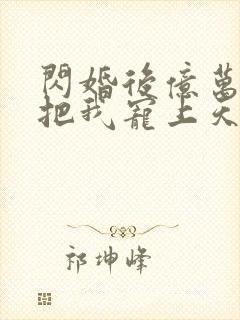 閃婚後億萬
把我寵上天
祁坤峰